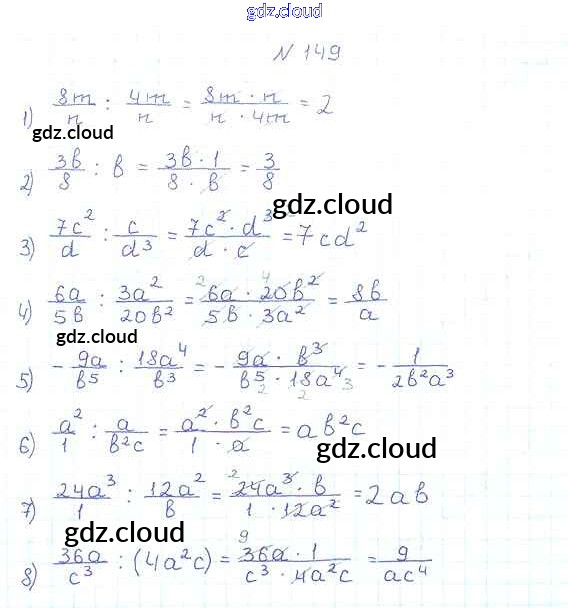 gdz.cloud
N 149
1) 8m/n : 4m/n = 8m · n / n · 4m = 2
gdz.cloud
2) 3b/8 : b = 3b · 1 / 8 · b = 3/8
gdz.cloud
3) 7c²/d : c/d³ = 7c² · d³ / d · c = 7cd²
4) 6a/5b : 3a²/20b² = ²6a · ⁴20b² / 5b · 3a² = 8b/a
gdz.cloud
5) - 9a/b⁵ : 18a⁴/b³ = - 9a · b³ / b⁵ 2 · 18 2 a⁴ 3 = - 1/2b²a³
6) a²/1 : a/b²c = a² · b²c / 1 · a = ab²c
gdz.cloud
7) 24a³/1 : 12a²/b = ²24a³ · b / 1 · 12a² = 2ab
gdz.cloud
8) 36a/c³ : (4a²c) = ⁹36a · 1 / c³ · 4a²c = 9/ac⁴